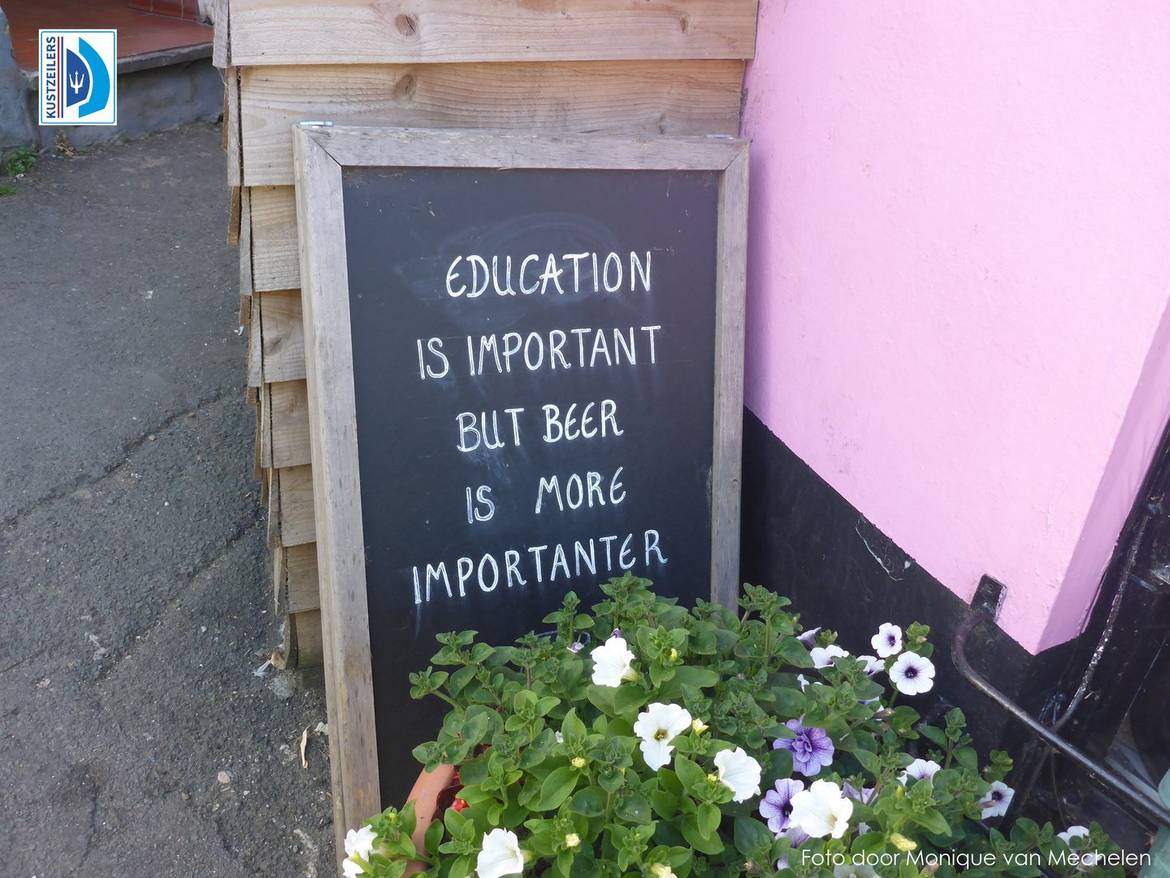 KUSTZEILERS
EDUCATION
IS IMPORTANT
BUT BEER
IS MORE
IMPORTANTER
Foto door Monique van Mechelen